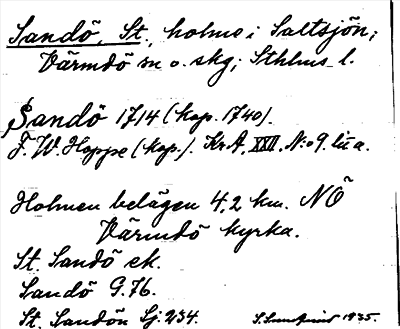 Sandö, St., holme i Saltsjön;
Värmdö sn o. skg; Sthlms l.
Sandö 1714 (kop. 1740).
F. W. Hoppe (kop.). Kr A, XXII, N:o 9. lit a.
Holmen belägen 4,2 km. NÖ
Värmdö kyrka.
St. Sandö ek.
Sandö G. 76.
St. Sandön Sj 234.
1935.